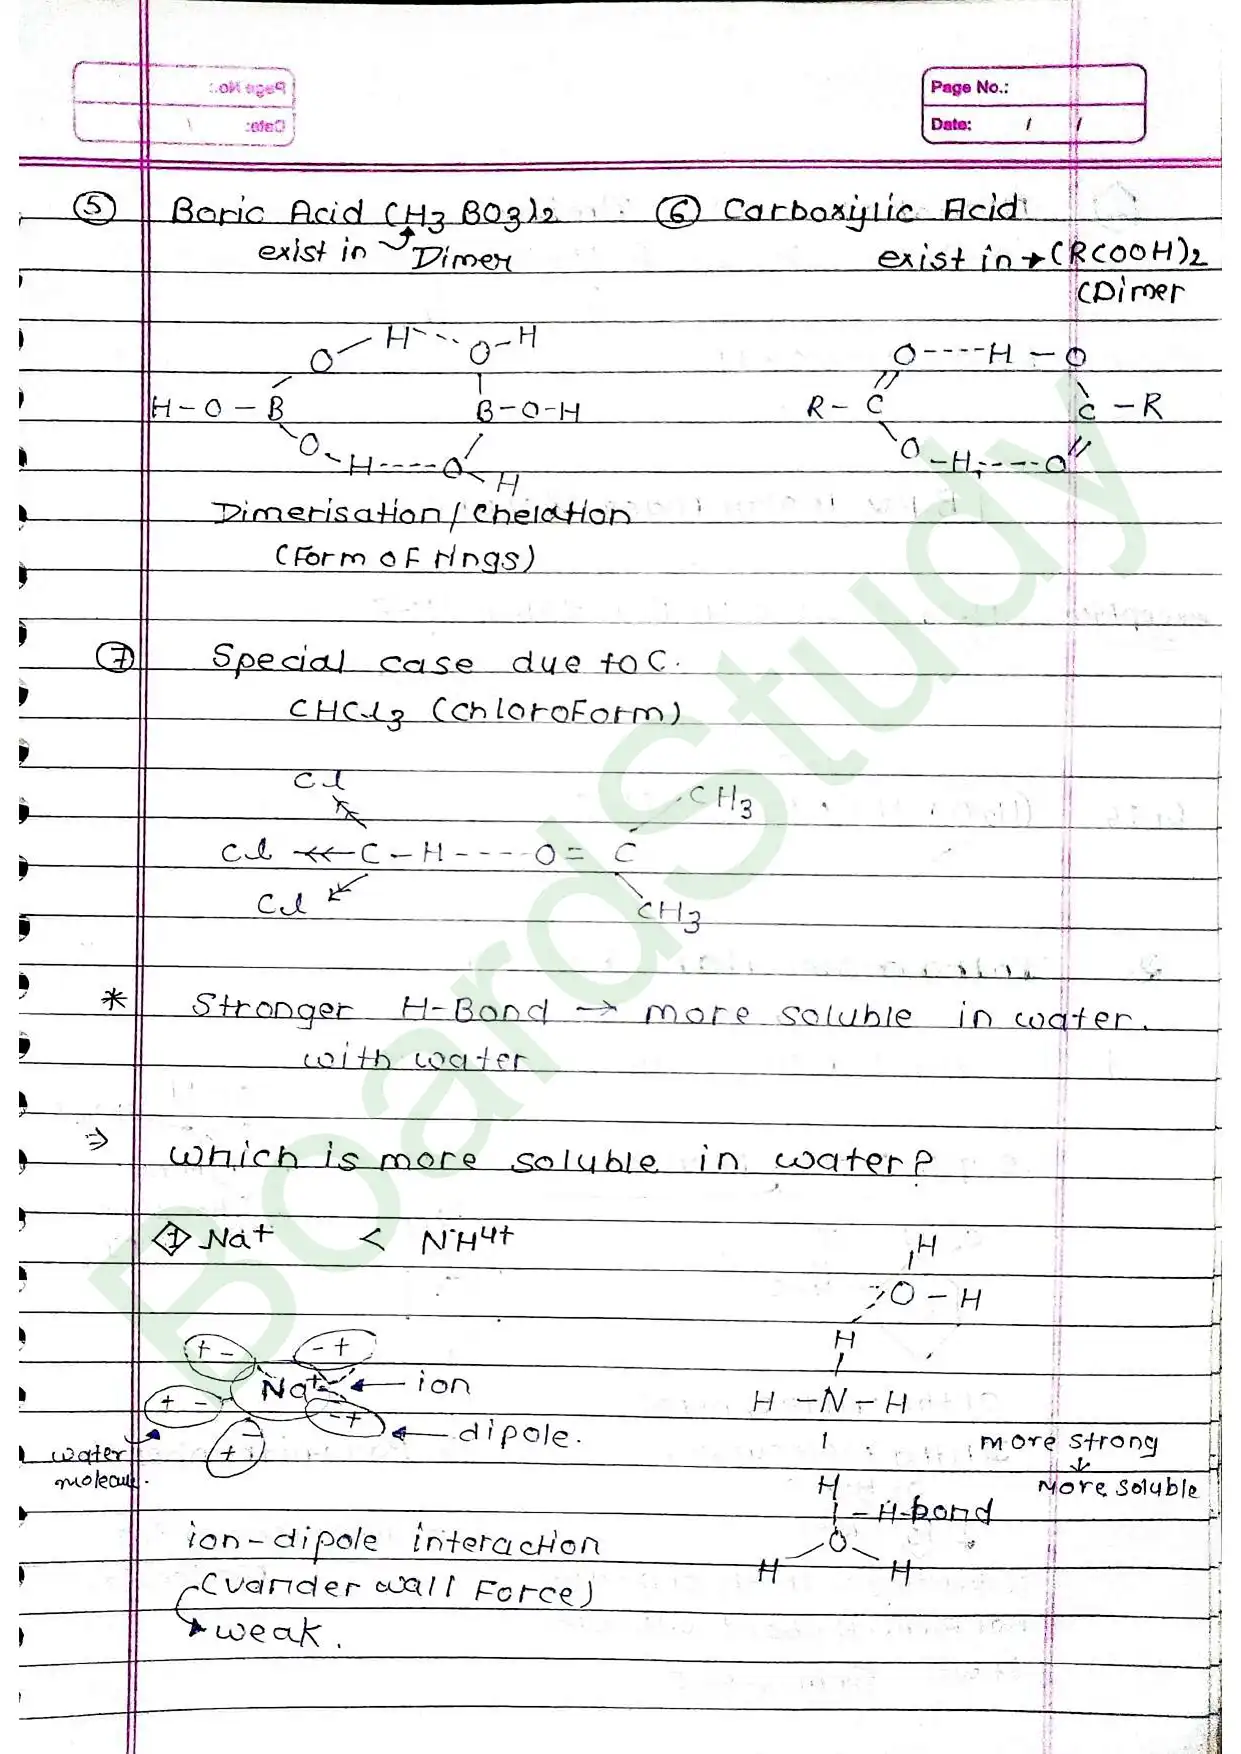 Page No.:
Date: / /
⑤ Boric Acid (H3 BO3)2
exist in Dimer
⑥ Carboxylic Acid
exist in → (RCOOH)2
(Dimer
O — H ---- O - H
H - O - B B - O - H
O - H ---- O - H
O ---- H - O
R - C C - R
O - H ---- O
Dimerisation / Chelation
(Form of rings)
⑦ Special case due to C.
CHCl3 (Chloroform)
Cl CH3
Cl C - H ---- O = C
Cl CH3
* Stronger H-Bond → more soluble in water.
with water
⇒ Which is more soluble in water?
1 Na+ < NH4+
H
O - H
H
H - N - H
H
H-bond
O
H H
more strong
↓
More soluble
+ - - +
Na+ ← ion
+ - - + ← dipole.
- +
water
molecule.
ion-dipole interaction
(vander wall Force)
weak.
BoardStudy